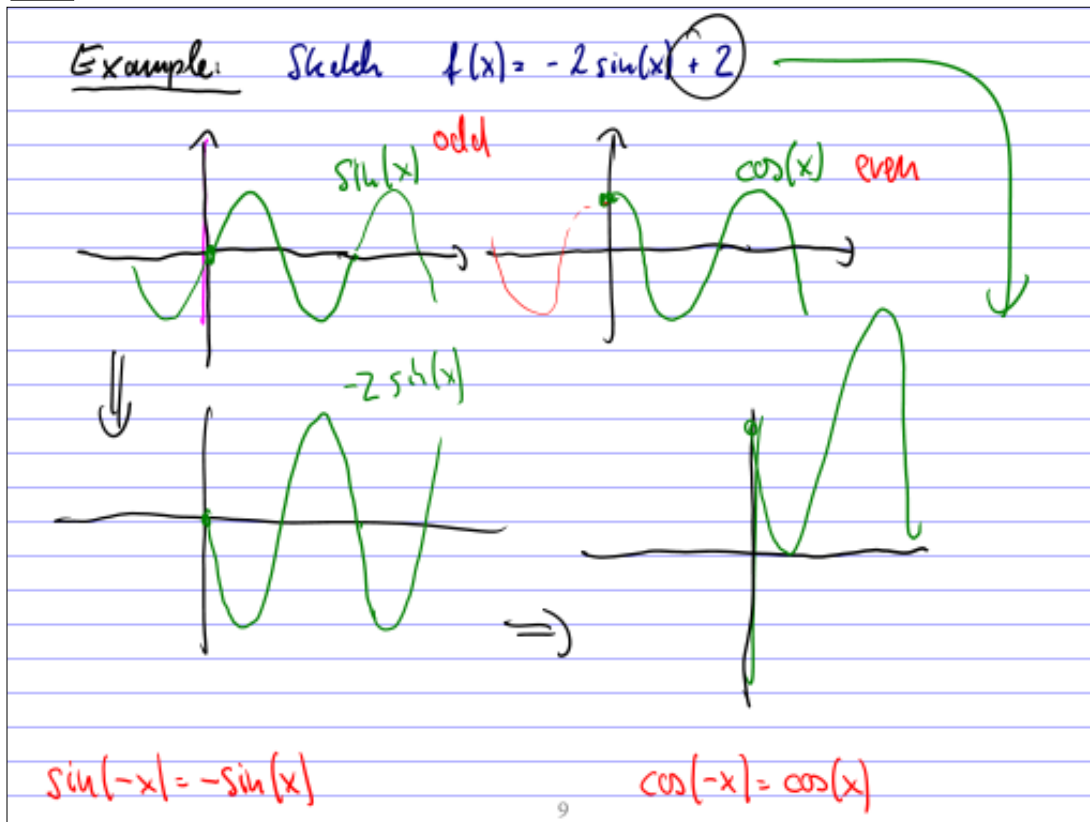 Example: Sketch f(x) = - 2 sin(x) + 2
sin(x) odd
cos(x) even
-2 sin(x)
sin(-x) = -sin(x)
cos(-x) = cos(x)
9